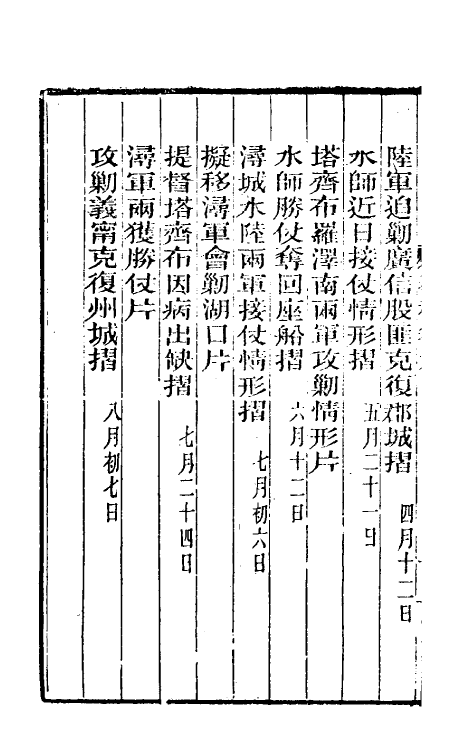 陸軍追剿廣信股匪克復郡城摺 四月十二日
水師近日接仗情形摺 五月二十一日
塔齊布羅澤南兩軍攻剿情形片
水師勝仗奪回座船摺 六月十二日
潯城水陸兩軍接仗情形摺 七月初六日
擬移潯軍會剿湖口片
提督塔齊布因病出缺摺 七月二十四日
潯軍兩獲勝仗片
攻剿義甯克復州城摺 八月初七日